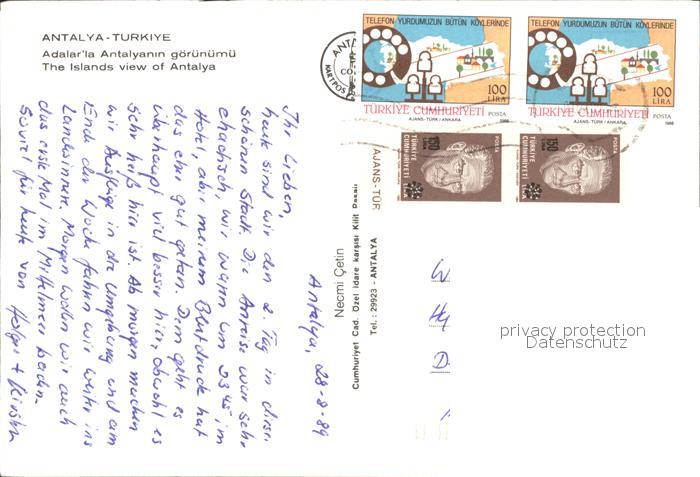 ANTALYA-TURKIYE
Adalar'la Antalyanın görünümü
The Islands view of Antalya
Antalya, 28-8-89
Ihr Lieben,
heute sind wir den 2. Tag in dieser
schönen Stadt. Die Anreise war sehr
chaotisch, wir waren um 23⁴⁵ im
Hotel, aber meinem Blutdruck hat
das eher gut getan. Dem geht es
überhaupt viel besser hier, obwohl es
sehr heiß hier ist. Ab morgen machen
wir Ausflüge in die Umgebung und am
Ende der Woche fahren wir weiter ins
Landesinnere. Morgen wollen wir auch
das erste Mal im Mittelmeer baden.
Soviel für heute von Holger + Kirsten
Necmi Çetin
Cumhuriyet Cad. Özel idare karşısı Kilit Pasajı
Tel.: 29923 - ANTALYA
AJANS-TÜR
ANTA
KARTPOS
TELEFON YURDUMUZUN BÜTÜN KÖYLERİNDE
100
LİRA
TÜRKİYE CUMHURİYETİ POSTA
AJANS-TÜRK/ANKARA 1988
TELEFON YURDUMUZUN BÜTÜN KÖYLERİNDE
100
LİRA
TÜRKİYE CUMHURİYETİ POSTA
AJANS-TÜRK/ANKARA 1988
POSTA
TÜRKİYE
CUMHURİYETİ
150
LİRA
POSTA
TÜRKİYE
CUMHURİYETİ
150
LİRA
W
Hy
D
privacy protection
Datenschutz